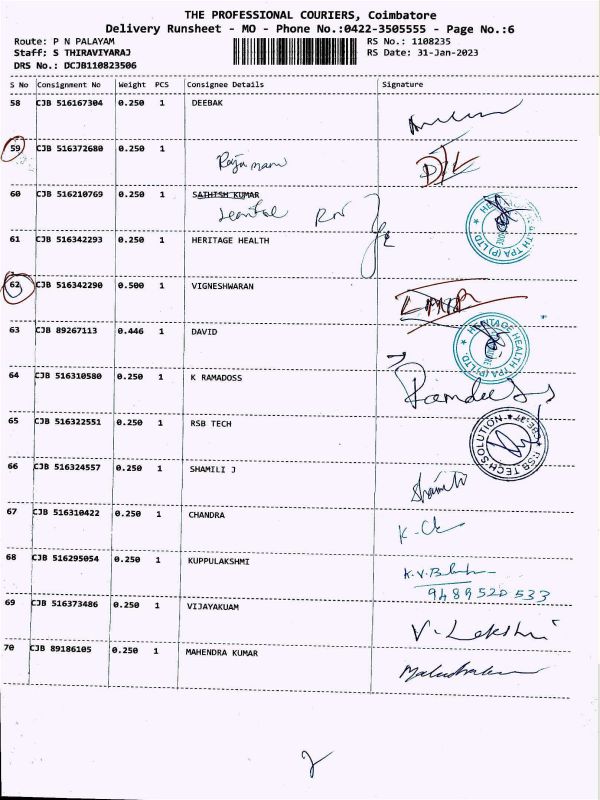 THE PROFESSIONAL COURIERS, Coimbatore
Delivery Runsheet - MO - Phone No.:0422-3505555 - Page No.:6
Route: P N PALAYAM RS No.: 1108235
Staff: S THIRAVIYARAJ RS Date: 31-Jan-2023
DRS No.: DCJB110823506
S No Consignment No Weight PCS Consignee Details Signature
58 CJB 516167304 0.250 1 DEEBAK
59 CJB 516372680 0.250 1
Rajamani
60 CJB 516210769 0.250 1 SATHISH KUMAR
61 CJB 516342293 0.250 1 HERITAGE HEALTH
HERITAGE HEALTH TPA (P) LTD.
62 CJB 516342290 0.500 1 VIGNESHWARAN
63 CJB 89267113 0.446 1 DAVID
HERITAGE HEALTH TPA (P) LTD.
64 CJB 516310580 0.250 1 K RAMADOSS
Ramdoss
65 CJB 516322551 0.250 1 RSB TECH
RSB TECH SOLUTION
66 CJB 516324557 0.250 1 SHAMILI J
Shamili
67 CJB 516310422 0.250 1 CHANDRA
68 CJB 516295054 0.250 1 KUPPULAKSHMI
9489520533
69 CJB 516373486 0.250 1 VIJAYAKUAM
V. Lakshmi
70 CJB 89186105 0.250 1 MAHENDRA KUMAR